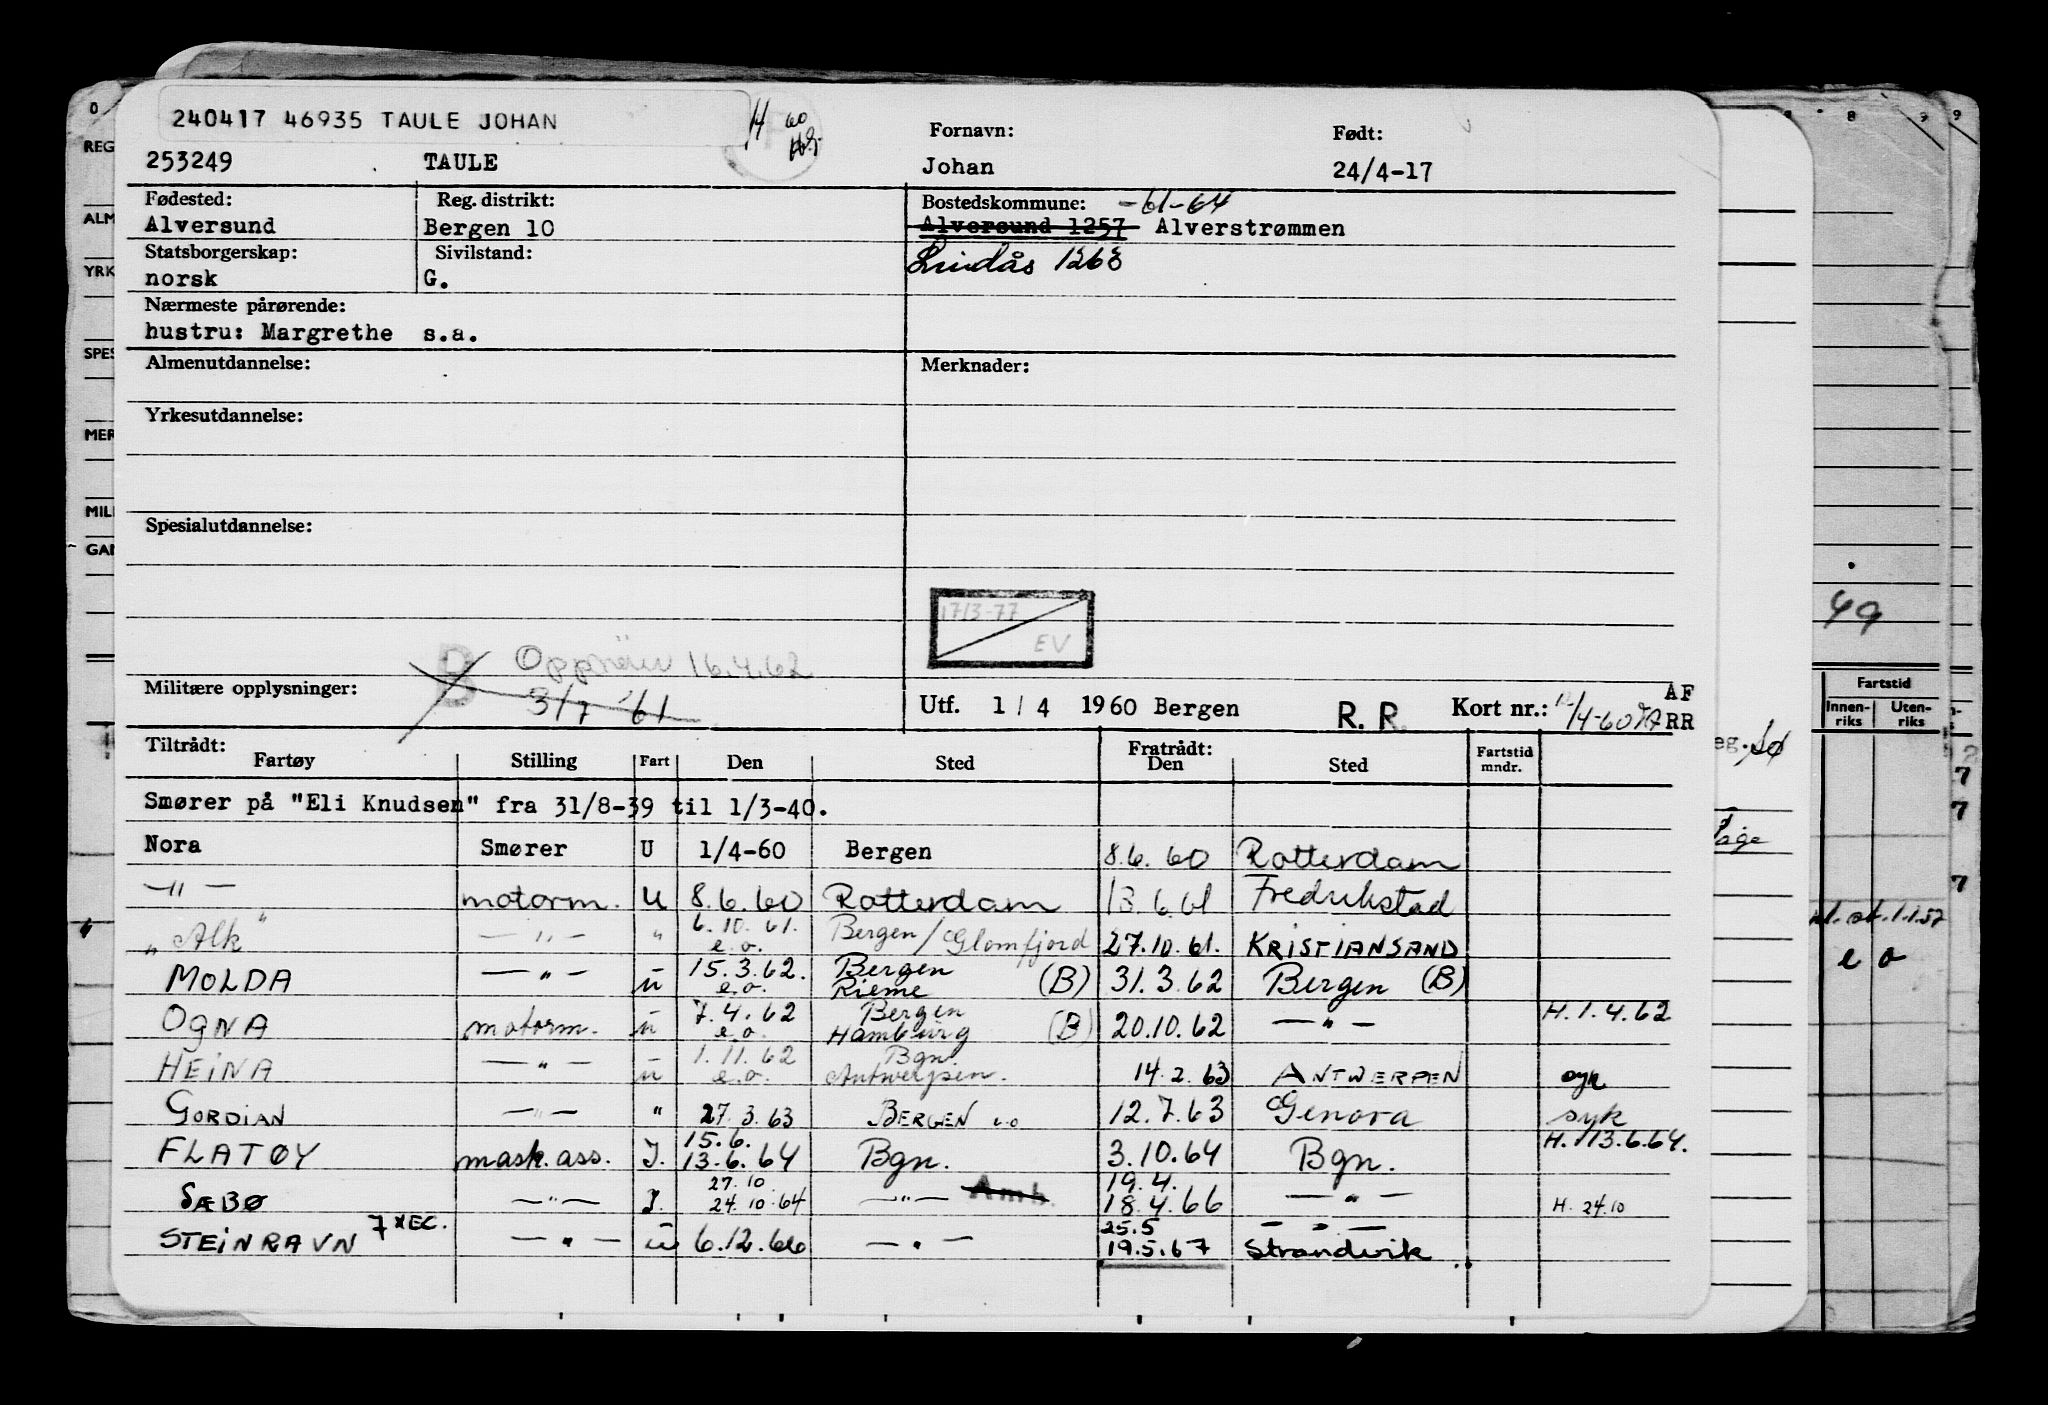 240417 46935 TAULE JOHAN
253249 TAULE
Fornavn: Født:
Johan 24/4-17
Fødested: Reg. distrikt: Bostedskommune: -61-64
Alversund Bergen 10 Alversund 1257 Alverstrømmen
Statsborgerskap: Sivilstand: Lindås 1263
norsk G.
Nærmeste pårørende:
hustru: Margrethe s.a.
Almenutdannelse: Merknader:
Yrkesutdannelse:
Spesialutdannelse:
17/3-77
EV
B 16.4.62
3/7 '61
Militære opplysninger: Utf. 1/4 1960 Bergen R. R. Kort nr.: AF
RR
Tiltrådt: Fratrådt:
Fartøy Stilling Fart Den Sted Den Sted Fartstid mndr.
Smører på "Eli Knudsen" fra 31/8-39 til 1/3-40.
Nora Smører U 1/4-60 Bergen 8.6.60 Rotterdam
—"— motorm. U 8.6.60 Rotterdam 13.6.61 Fredrikstad
"Alk" —"— " 6.10.61. e.o. Bergen/Glomfjord 27.10.61. KRISTIANSAND
MOLDA —"— u 15.3.62. e.o. Bergen Rieme (B) 31.3.62 Bergen (B)
OGNA motorm. u 7.4.62 e.o. Bergen Hamburg (B) 20.10.62 —"— H.1.4.62
HEINA —"— u 1.11.62 e.o. Bgn. Antwerpen. 14.2.63 ANTWERPEN syk
GORDIAN —"— " 27.3.63 BERGEN u.o 12.7.63 Genova syk
FLATØY mask.ass. I. 15.6. 13.6.64 Bgn. 3.10.64 Bgn. H. 13.6.64.
SÆBØ —"— I. 27.10 24.10.64 —"— Amb. 19.4. 18.4.66 —"— H. 24.10
STEINRAVN 7XEC. —"— u 6.12.66 —"— 25.5 19.5.67 —"— Strandvik
O
REG
ALM
YRK
SPES
MER
MILI
GAN
8 9 9
49
Fartstid
Innen-riks Uten-riks
7
7
7
1.1.57
e o